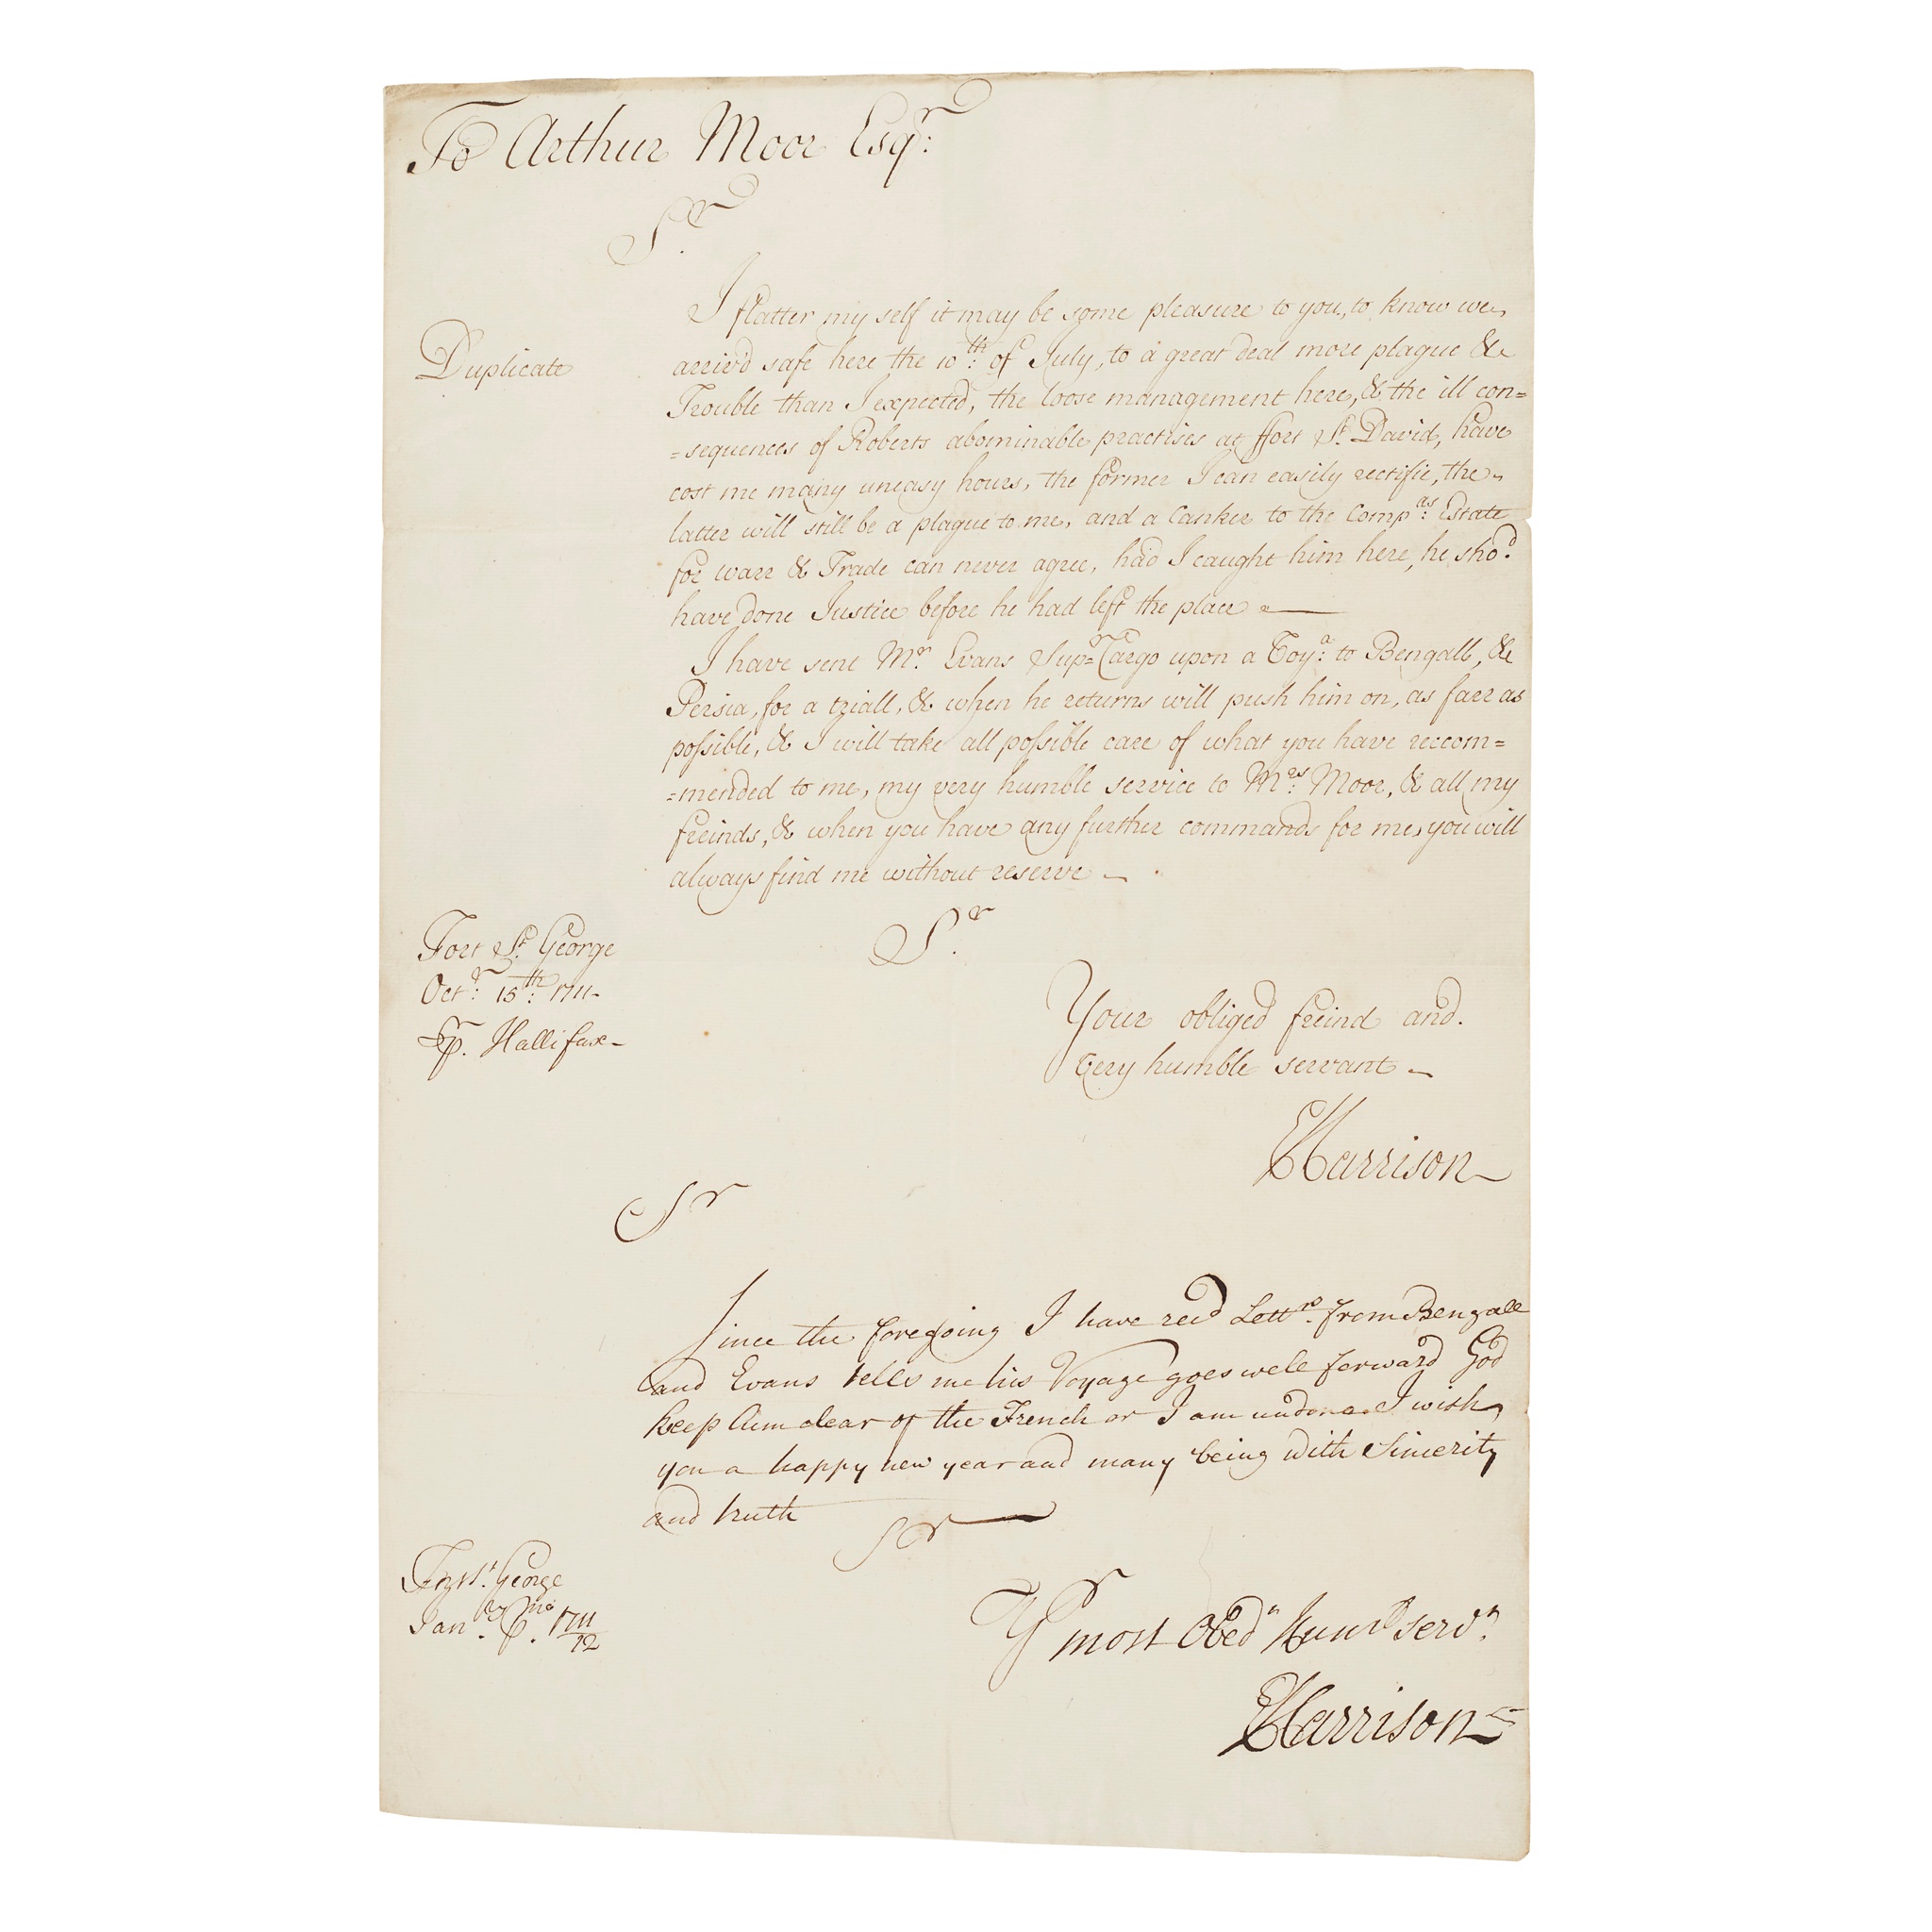 To Arthur Moor Esqr:
Sr.
Duplicate
I flatter my self it may be some pleasure to you, to know we
arriv'd safe here the 10th: of July, to a great deal more plague &
Trouble than I expected, the loose management here, & the ill con=
=sequences of Roberts abominable practises at ffort St. David, have
cost me many uneasy hours, the former I can easily rectifie, the
latter will still be a plague to me, and a Canker to the Compas: Estate
for warr & Trade can never agree, had I caught him here, he shod.
have done Justice before he had left the place
I have sent Mr. Evans Supr=Cargo upon a Voya: to Bengall, &
Persia, for a triall, & when he returns will push him on, as farr as
possible, & I will take all possible care of what you have reccom=
=mended to me, my very humble service to Mrs: Moor, & all my
freinds, & when you have any further commands for me, you will
always find me without reserve
Sr.
Fort St. George
Octr: 15th: 1711
Pr. Hallifax
Your obliged freind and
Very humble servant
EHarrison
Sr
Since the foregoing I have recd Lettrs. from Bengall
and Evans tells me his Voyage goes well forward God
keep him clear of the French or I am undone I wish
you a happy new year and many being with Sincerity
and truth
Sr
Fort St. George
Jany. 1711/12
Yr most Obedn Humb servn.
EHarrison